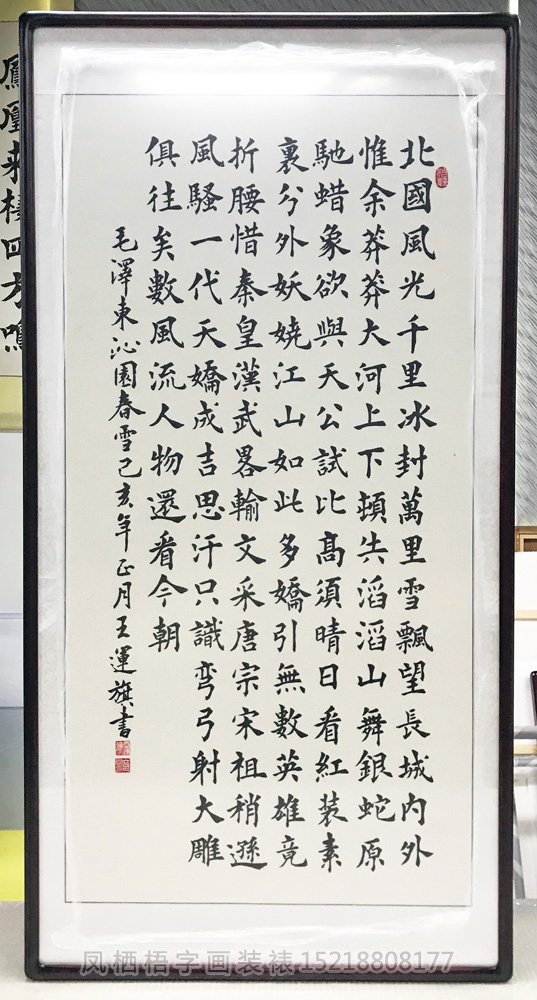 北國風光千里冰封萬里雪飄望長城内外
惟余莽莽大河上下頓失滔滔山舞銀蛇原
馳蜡象欲與天公試比高須晴日看紅装素
裹分外妖嬈江山如此多嬌引無數英雄竟
折腰惜秦皇漢武畧輸文采唐宗宋祖稍遜
風騷一代天嬌成吉思汗只識弯弓射大雕
俱往矣數風流人物還看今朝
毛澤東沁園春雪己亥年正月王運旗書
鳳凰来棲四方鳴
凤栖梧字画装裱15218808177